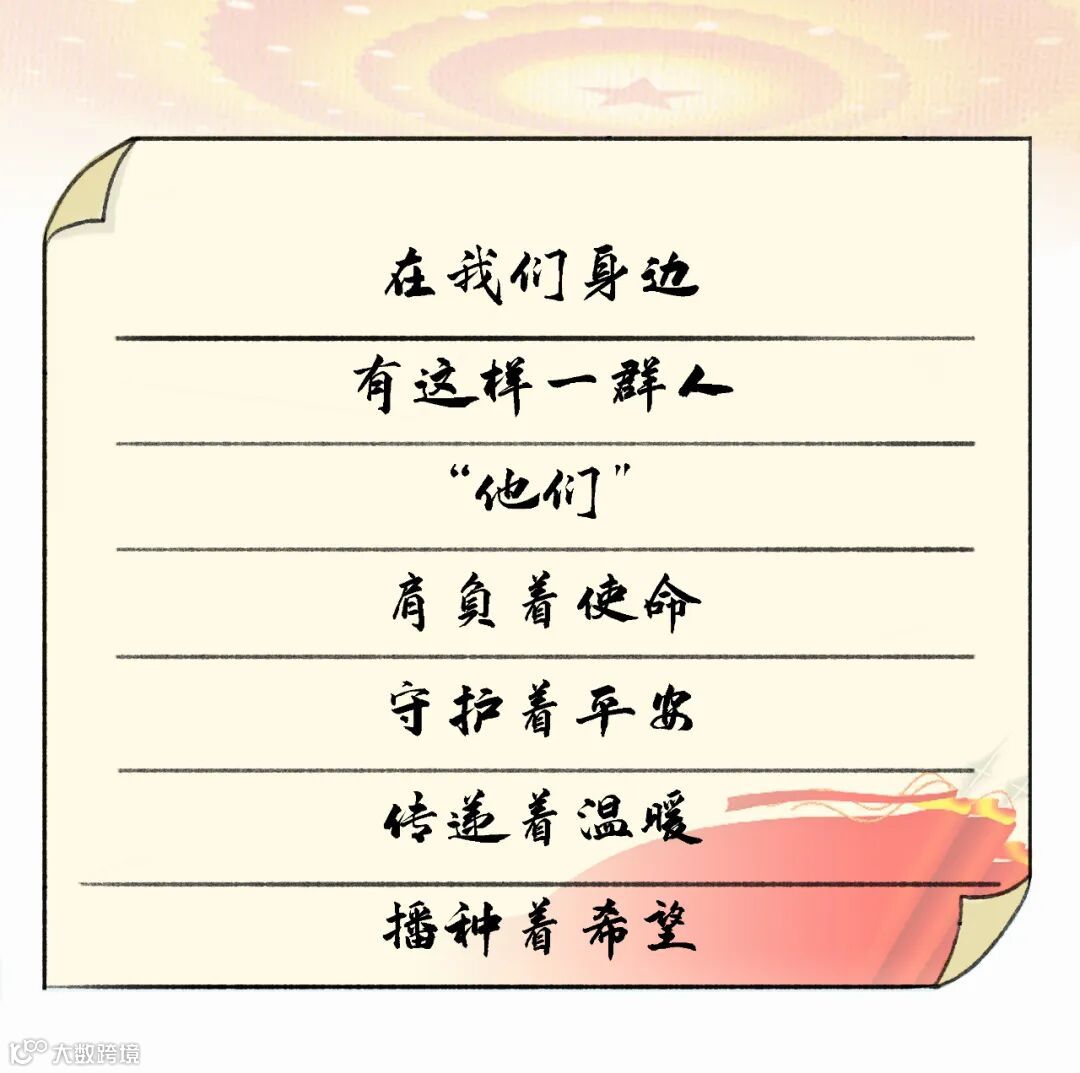 在我们身边
有这样一群人
“他们”
肩负着使命
守护着平安
传递着温暖
播种着希望
大数跨境